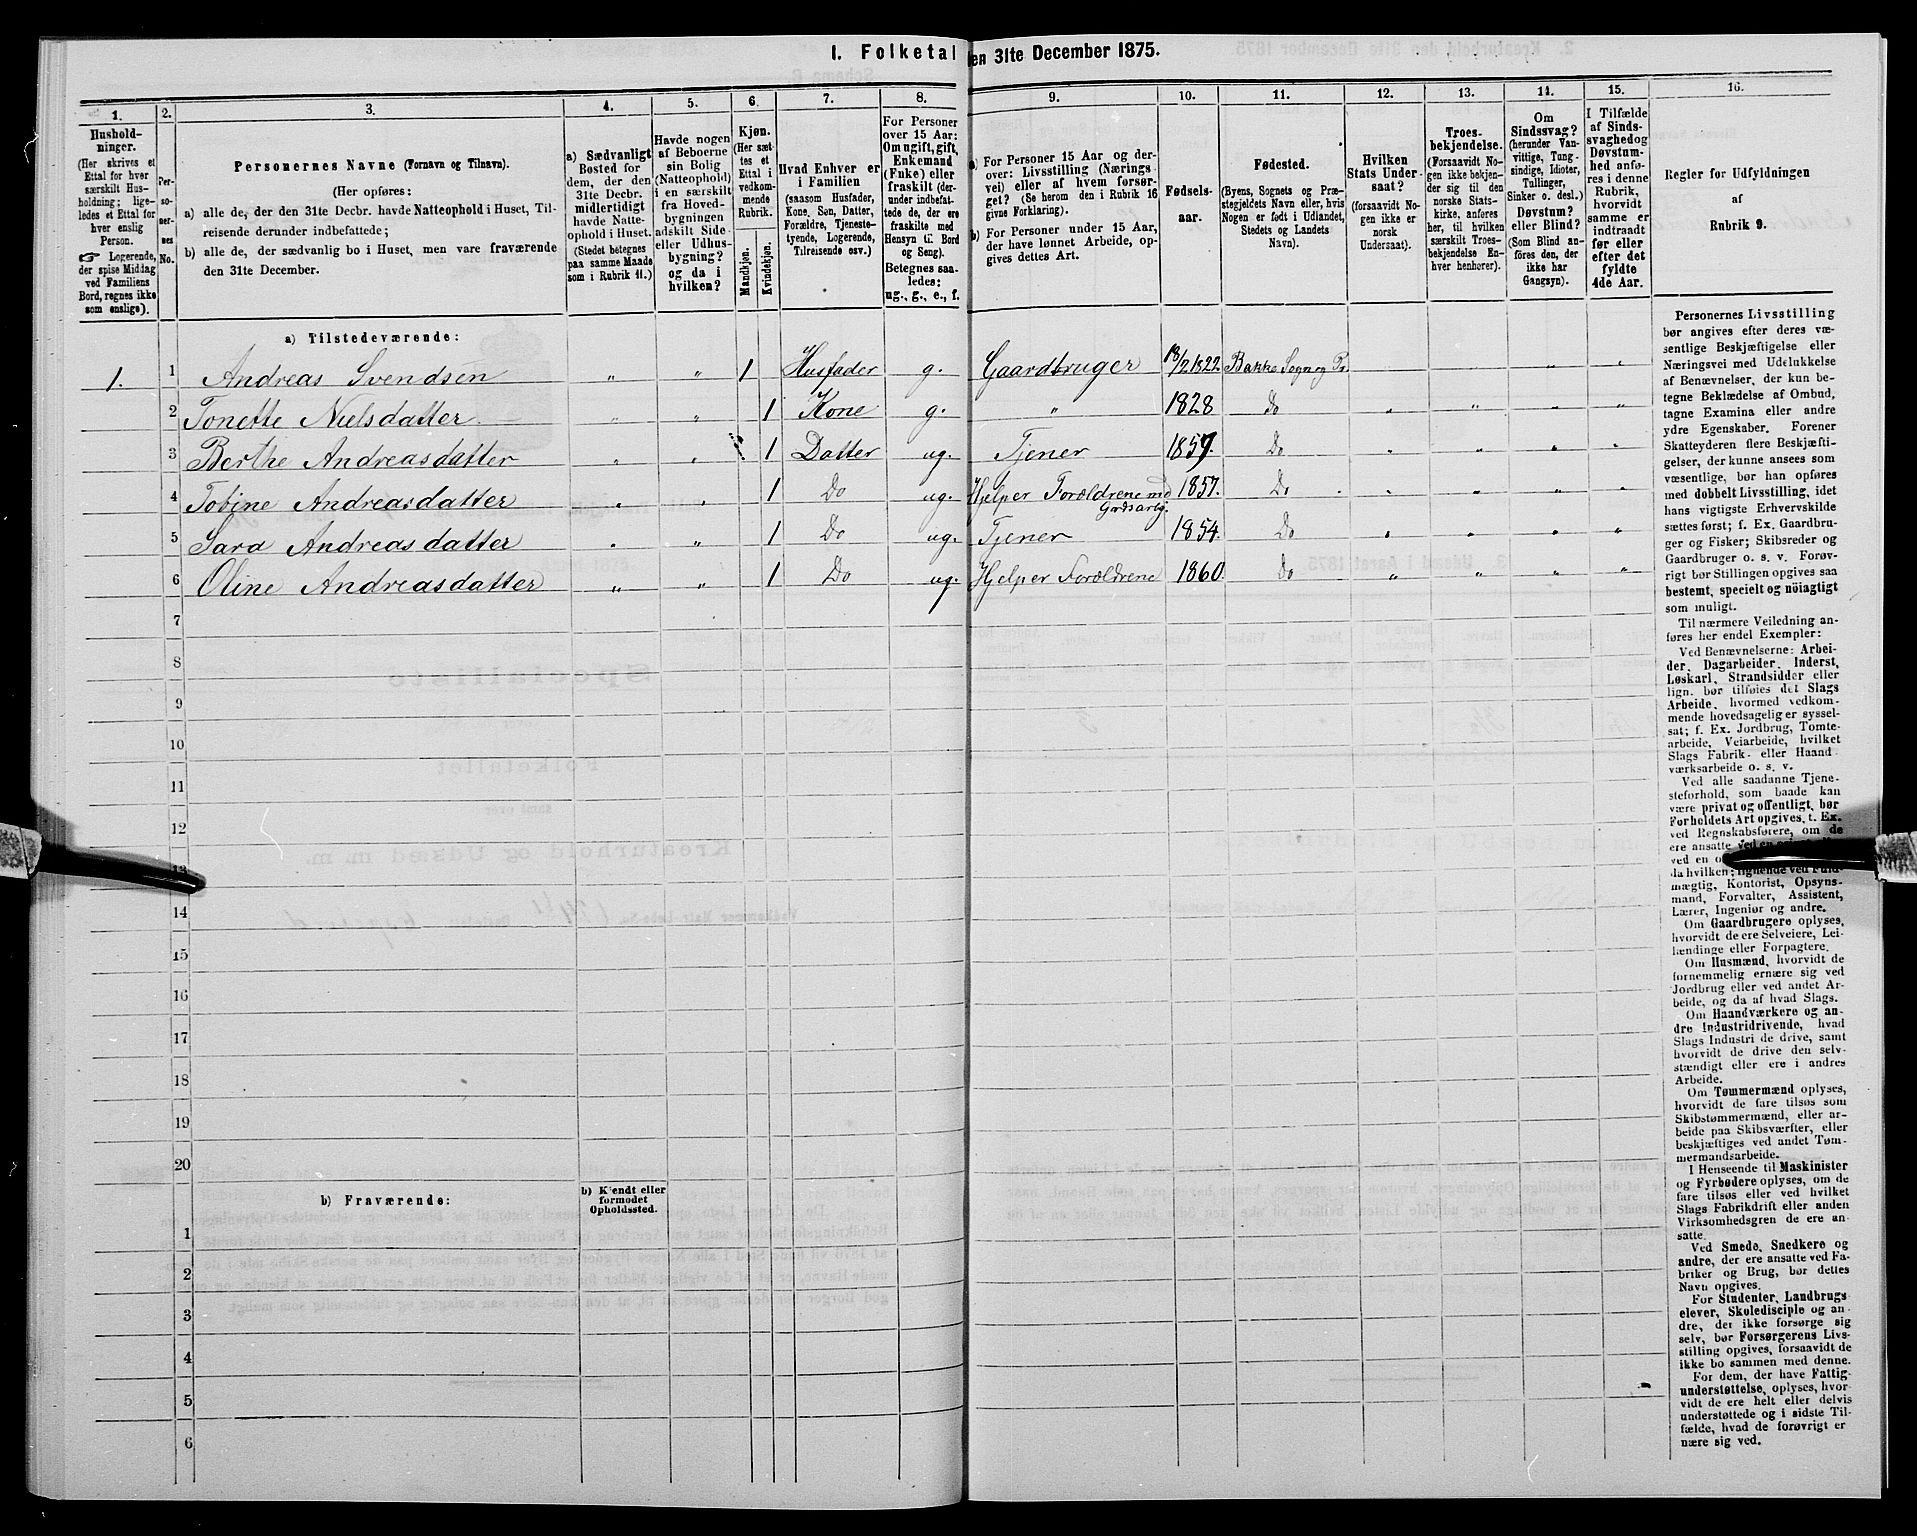 1. Folketal den 31te December 1875.
1.
Hushold-
ninger.
(Her skrives et
Ettal for hver
særskilt Hus-
holdning; lige-
ledes et Ettal for
hver enslig
Person.
☞ Logerende,
der spise Middag
ved Familiens
Bord, regnes ikke
som enslige).
2.
Per-
so-
ner-
nes
No.
3.
Personernes Navne (Fornavn og Tilnavn).
(Her opføres:
a) alle de, der den 31te Decbr. havde Natteophold i Huset, Til-
reisende derunder indbefattede;
b) alle de, der sædvanlig bo i Huset, men vare fraværende
den 31te December.
4.
a) Sædvanligt
Bosted for
dem, der den
31te Decbr.
midlertidigt
havde Natte-
ophold i Huset.
(Stedet betegnes
paa samme Maade
som i Rubrik 11.)
5.
Havde nogen
af Beboerne
sin Bolig
(Natteophold)
i en særskilt
fra Hoved-
bygningen
adskilt Side-
eller Udhus-
bygning?
og da i
hvilken?
6.
Kjøn.
(Her sæt-
tes et
Ettal i
vedkom-
mende
Rubrik.
Mandkjøn.
Kvindekjøn.
7.
Hvad Enhver er
i Familien
(saasom Husfader,
Kone, Søn, Datter,
Forældre, Tjeneste-
tyende, Logerende,
Tilreisende osv.)
8.
For Personer
over 15 Aar:
Om ugift, gift,
Enkemand
(Enke) eller
fraskilt (der-
under indbefat-
tede de, der ere
fraskilte med
Hensyn til Bord
og Seng).
Betegnes saa-
ledes:
ug., g., e., f.
9.
a) For Personer 15 Aar og der-
over: Livsstilling (Nærings-
vei) eller af hvem forsør-
get? (Se herom den i Rubrik 16
givne Forklaring.)
b) For Personer under 15 Aar,
der have lønnet Arbeide, op-
gives dettes Art.
10.
Fødsels-
aar.
11.
Fødested.
(Byens, Sognets og Præ-
stegjeldets Navn eller, hvis
Nogen er født i Udlandet,
Stedets og Landets
Navn).
12.
Hvilken
Stats Under-
saat?
(forsaavidt No-
gen ikke er
norsk
Undersaat).
13.
Troes-
bekjendelse.
(Forsaavidt No-
gen ikke bekjen-
der sig til den
norske Stats-
kirke, anføres
her, til hvilken
særskilt Troes-
bekjendelse En-
hver henhører).
14.
Om
Sindssvag?
(herunder Van-
vittige, Tung-
sindige, Idioter,
Tullinger,
Sinker o. desl.)
Døvstum?
eller Blind?
(Som Blind an-
føres den, der
ikke har
Gangsyn).
15.
I Tilfælde
af Sinds-
svaghed og
Døvstum-
hed anfø-
res i denne
Rubrik,
hvorvidt
samme er
indtraadt
før eller
efter det
fyldte
4de Aar.
16.
Regler for Udfyldningen
af
Rubrik 9.
a) Tilstedeværende:
1. 1 Andreas Svendsen " " 1 Husfader g. Gaardbruger 18/2 1822. Bakke Sogn og Pr " "
2 Tonette Nielsdatter " " 1 Kone g. " 1828 Do " " " "
3 Berthe Andreasdatter " " 1 Datter ug. Tjener 1859. Do " " " "
4 Tobine Andreasdatter " " 1 Do ug. Hjelper Forældrene md Grdsarb. 1857. Do " " " "
5 Sara Andreasdatter " " 1 Do ug. Tjener 1854. Do " " " "
6 Oline Andreasdatter " " 1 Do ug. Hjelper Forældrene 1860. Do " " " "
7
8
9
10
11
12
13
14
15
16
17
18
19
20
b) Fraværende:
b) Kjendt eller
formodet
Opholdssted.
1
2
3
4
5
6
Personernes Livsstilling
bør angives efter deres væ-
sentlige Beskjæftigelse eller
Næringsvei med Udelukkelse
af Benævnelser, der kun be-
tegne Beklædelse af Ombud,
tagne Examina eller andre
ydre Egenskaber. Forener
Skatteyderen flere Beskjæfti-
gelser, der kunne ansees som
væsentlige, bør han opføres
med dobbelt Livsstilling, idet
hans vigtigste Erhvervskilde
sættes først; f. Ex. Gaardbru-
ger og Fisker; Skibsreder og
Gaardbruger o. s. v. Forøv-
rigt bør Stillingen opgives saa
bestemt, specielt og nöiagtigt
som muligt.
Til nærmere Veiledning an-
føres her endel Exempler:
Ved Benævnelserne: Arbei-
der, Dagarbeider, Inderst,
Løskarl, Strandsidder eller
lign. bør tilføies det Slags
Arbeide, hvormed vedkom-
mende hovedsagelig er syssel-
sat; f. Ex. Jordbrug, Tomte-
arbeide, Veiarbeide, hvilket
Slags Fabrik- eller Haand-
værksarbeide o. s. v.
Ved alle saadanne Tjene-
steforhold, som baade kan
være privat og offentligt, bør
Forholdets Art opgives, t. Ex.
ved Regnskabsførere, om de
ere ansatte ved en
ved en o
da hvilken; lignende ved Fuld-
mægtig, Kontorist, Opsyns-
mand, Forvalter, Assistent,
Lærer, Ingeniør og andre.
Om Gaardbrugere oplyses,
hvorvidt de ere Selveiere, Lei-
lændinge eller Forpagtere.
Om Husmænd, hvorvidt de
fornemmelig ernære sig ved
Jordbrug eller ved andet Ar-
beide, og da af hvad Slags.
Om Haandværkere og an-
dre Industridrivende, hvad
Slags Industri de drive, samt
hvorvidt de drive den selv-
stændigt eller ere i andres
Arbeide.
Om Tømmermænd oplyses,
hvorvidt de fare tilsøs som
Skibstømmermænd, eller ar-
beide paa Skibsværfter, eller
beskjæftiges ved andet Tøm-
mermandsarbeide.
I Henseende til Maskinister
og Fyrbødere oplyses, om de
fare tilsøs eller ved hvilket
Slags Fabrikdrift eller anden
Virksomhedsgren de ere an-
satte.
Ved Smede, Snedkere og
andre, der ere ansatte ved Fa-
briker og Brug, bør dettes
Navn opgives.
For Studenter, Landbrugs-
elever, Skoledisciple og an-
dre, der ikke forsørge sig
selv, bør Forsørgerens Livs-
stilling opgives, forsaavidt de
ikke bo sammen med denne.
For dem, der have Fattig-
understøttelse, oplyses, hvor-
vidt de ere helt eller delvis
understøttede og i sidste Til-
fælde, hvad de forøvrigt er-
nære sig ved.